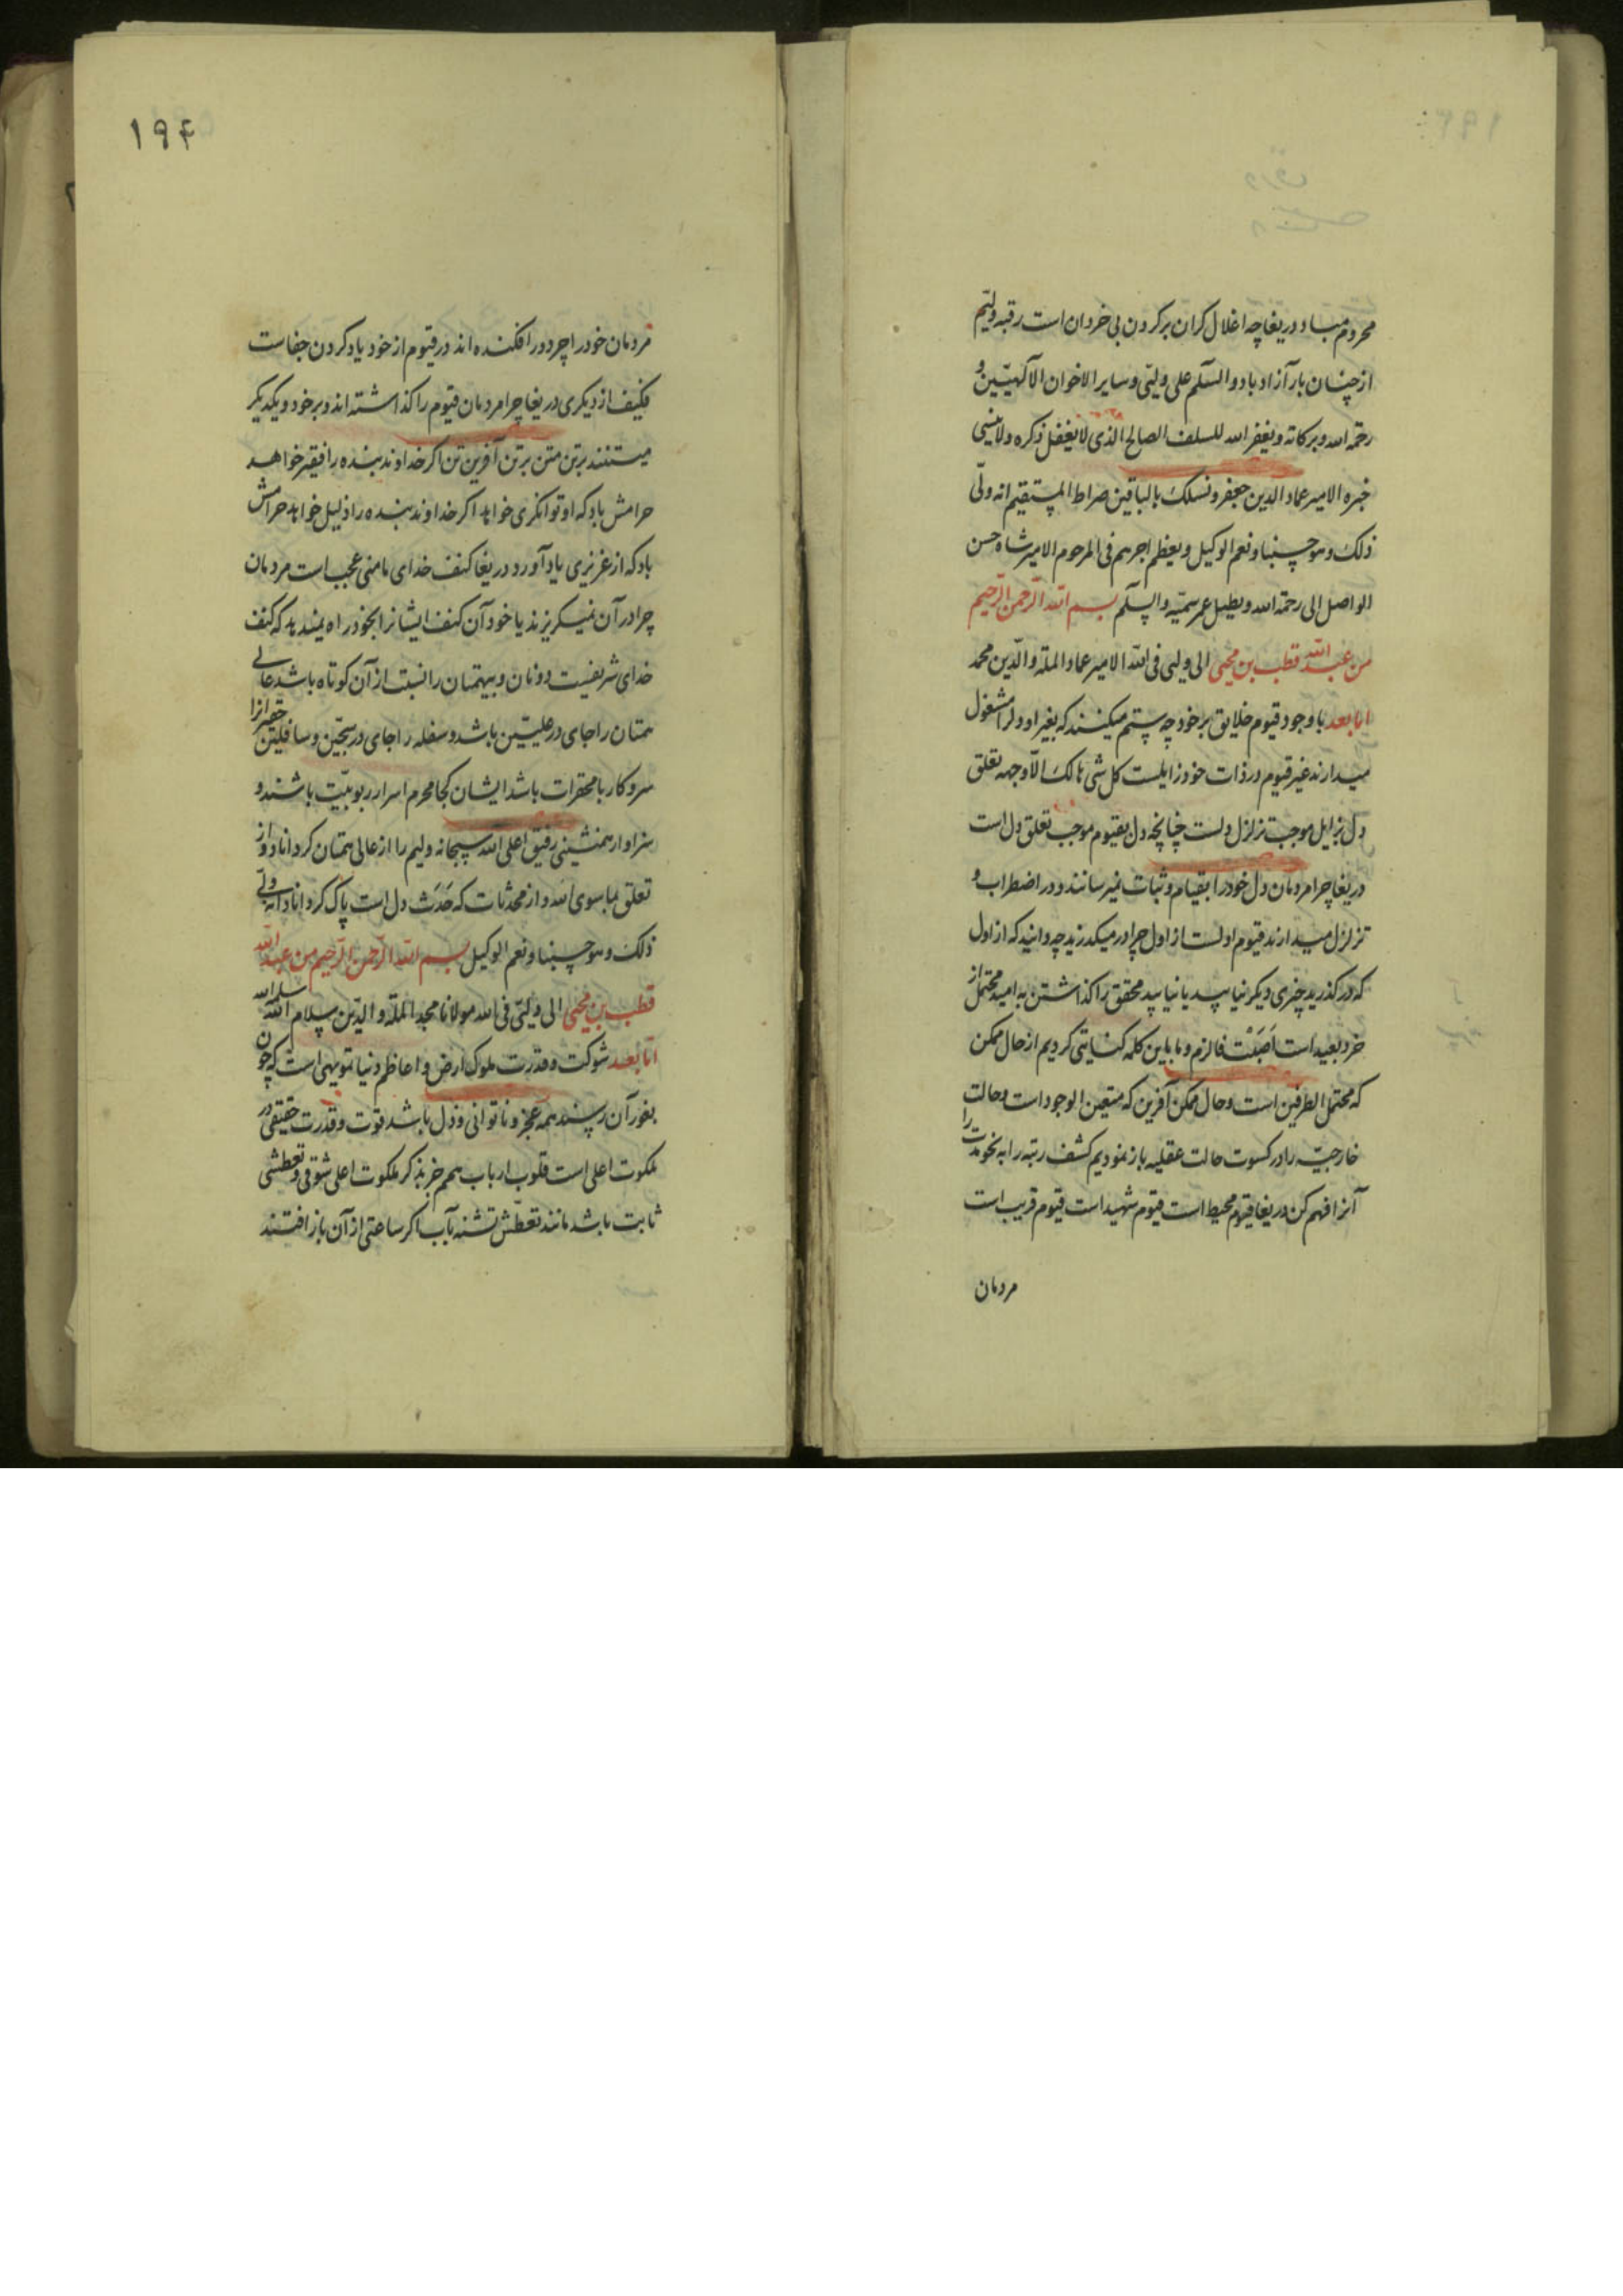 محروم مباد دریغا چه اغلال گران بر گردن بی خردان است رقبه ولیّم
از چنان بار آزاد باد والسّلم علی ولیّی و سایر الاخوان الآلهیّین و
رحمة الله و برکاته و یغفر الله للسلف الصالح الذی لا یغفل ذکره ولا ینسی
خبره الامیر عماد الدین جعفر و نسلک بالباقین صراط المستقیم انه ولیّ
ذلک و هو حسبنا و نعم الوکیل و یعظم اجرهم فی المرحوم الامیر شاه حسن
الواصل الی رحمة الله و یطیل عمر سمیّه والسلم بسم الله الرّحمن الرّحیم
من عبد الله قطب بن محیی الی ولیی فی الله الامیر عماد الملة والدّین محمد
اما بعد با وجود قیوم خلایق بر خود چه ستم میکنند که بغیر او دل را مشغول
میدارند غیر قیوم در ذات خود زایلست کل شی هالک الّا وجهه تعلق
دل بزایل موجب تزلزل دلست چنانچه دل بقیوم موجب تعلق دل است
دریغا چرا مردمان دل خود را بقیام و ثبات نمیرسانند و در اضطراب و
تزلزل میدارند قیوم اولست از اول چرا در میکذرید چه دانید که از اول
که در کذرید چیزی دیکر نیابید یا نیابید محقق را کذاشتن به امید محتمل از
خرد بعید است اَصَبْتَ فالزم و ما باین کلمه کنایتی کردیم از حال ممکن
که محتمل الطرفین است و حال ممکن آفرین که متعین الوجود است و حالت
خارجیّه را در کسوت حالت عقلیه باز نمودیم کشف رتبه را به نخوت را
آنرا فهم کن دریغا قیوم محیط است قیوم شهید است قیوم قریب است
مردمان
۱۹۴
مردمان خود را چرا دور افکنده اند در قیوم از خود یاد کردن جفاست
فکیف از دیکری دریغا چرا مردمان قیوم را کذاشته اند و بر خود و یکدیکر
میتنند برتن متن برتن آفرین تن اکر خداوند بنده را فقیر خواهد
حرامش باد که او توانکری خواهد اکر خداوند بنده را ذلیل خواهد حرامش
باد که از عزیزی یاد آورد دریغا کنف خدای مامنی عجب است مردمان
چرا در آن نمیکریزند یا خود آن کنف ایشانرا بخود راه نمیدهد که کنف
خدای شریفست دونان و بیهمتان را نسبت از آن کوتاه باشد عالی
همتان را جای در علیّین باشد و سفله را جای در سجّین و سافلین حقیرانرا
سر و کار با محقرات باشد ایشان کجا محرم اسرار ربوبیّت باشند و
سزاوار همنشینی رفیق اعلی الله سبحانه ولیم را از عالی همتان کرداناد و از
تعلق بماسوی الله و از محدثات که حَدَث دل است پاک کرداناد انه ولیّ
ذلک و هو حسبنا و نعم الوکیل بسم الله الرّحمن الرّحیم من عبد الله
قطب بن محیی الی ولیّی فی الله مولانا مجد الملة والدّین سلام الله سلمه الله
امّا بعد شوکت و قدرت ملوک ارض و اعاظم دنیا تمویهی است که چون
بغور آن رسند همه عجز و ناتوانی و ذل باشد قوت و قدرت حقیقی در
ملکوت اعلی است قلوب ارباب همم جز بذکر ملکوت اعلی شوقی و تعطشی
ثابت باشد مانند تعطّش تشنه بآب اکر ساعتی از آن باز افتند